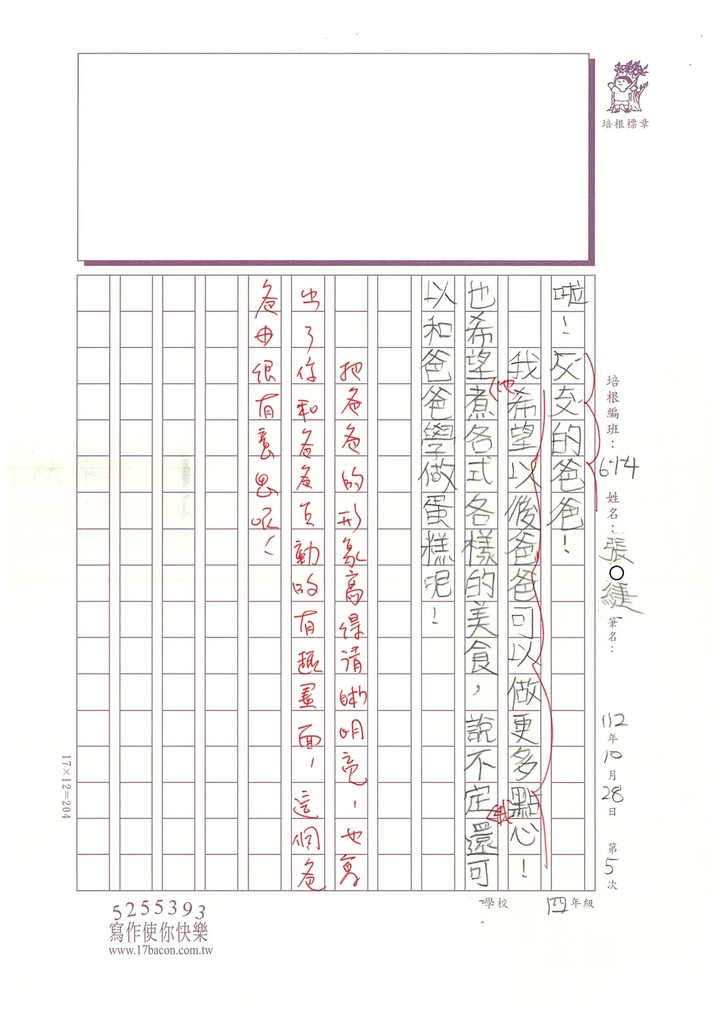 培根標章
培根編班：614
姓名：張○緁
筆名：
112年10月28日
第5次
四年級
學校
啦！交交的爸爸！
我希望以後爸爸可以做更多點心！
也希望煮各式各樣的美食，說不定還可
以和爸爸學做蛋糕呢！
他
我
把爸爸的形象寫得清晰明亮，也寫
出了你和爸爸互動的有趣畫面，這個爸
爸也很有意思呢！
17×12=204
5255393
寫作使你快樂
www.17bacon.com.tw